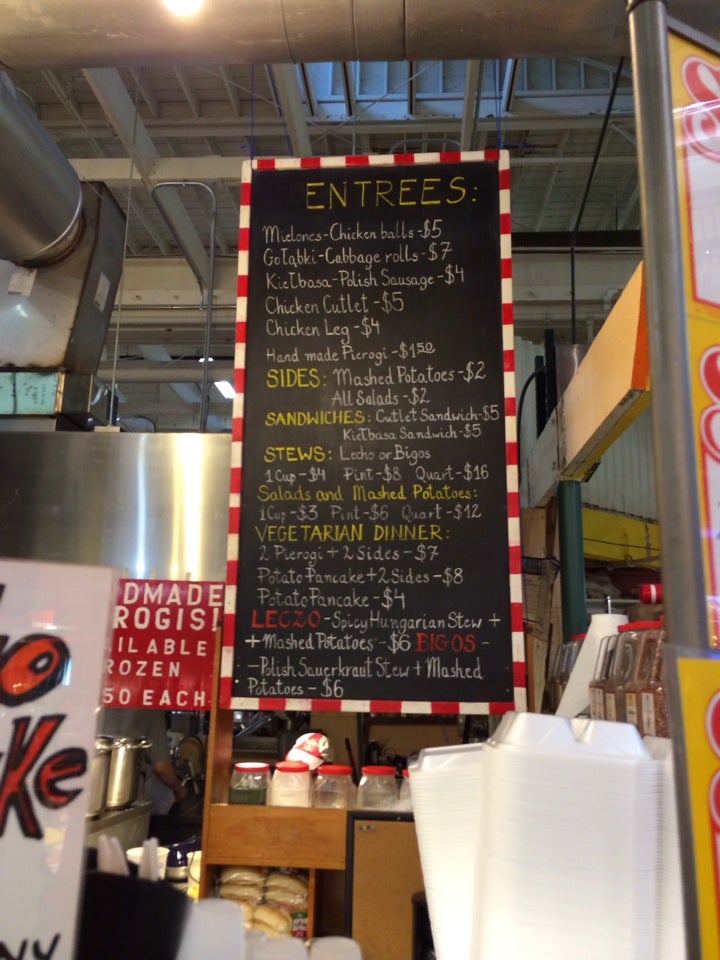 ENTREES:
Mielones-Chicken balls-$5
Gołąbki-Cabbage rolls-$7
Kiełbasa-Polish Sausage-$4
Chicken Cutlet-$5
Chicken Leg-$4
Hand made Pierogi-$1.50
SIDES: Mashed Potatoes-$2
All Salads-$2
SANDWICHES: Cutlet Sandwich-$5
Kiełbasa Sandwich-$5
STEWS: Lecho or Bigos
1 Cup-$4 Pint-$8 Quart-$16
Salads and Mashed Potatoes:
1 Cup-$3 Pint-$6 Quart-$12
VEGETARIAN DINNER:
2 Pierogi+2 Sides-$7
Potato Pancake+2 Sides-$8
Potato Pancake-$4
LECZO-Spicy Hungarian Stew +
+Mashed Potatoes-$6 BIGOS-
-Polish Sauerkraut Stew+Mashed
Potatoes-$6
DMADE
ROGIS!
AILABLE
ROZEN
50 EACH